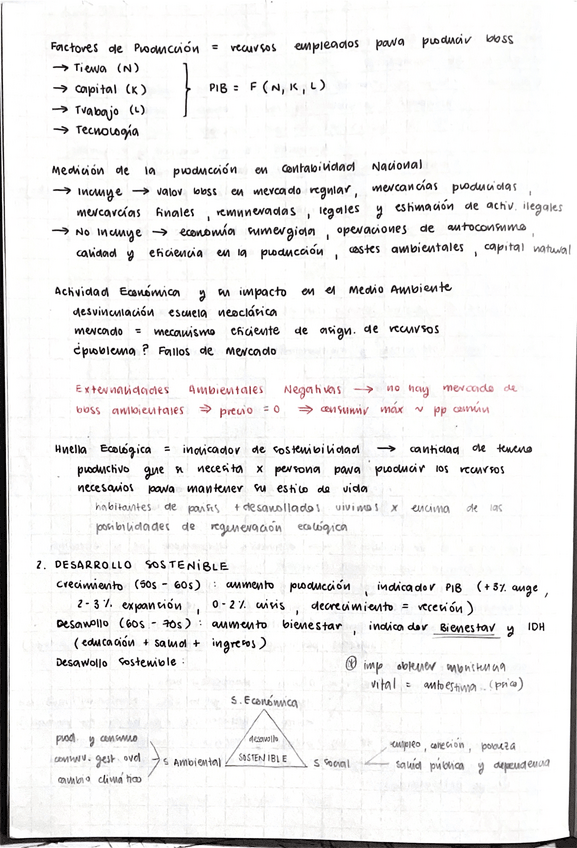 Factores de Producción = recursos empleados para producir bbss
→ Tierra (N)
→ Capital (K)
→ Trabajo (L)
→ Tecnología
PIB = F (N, K, L)
Medición de la producción en Contabilidad Nacional
→ Incluye → valor bbss en mercado regular, mercancías producidas,
mercancías finales, remuneradas, legales y estimación de activ. ilegales
→ No Incluye → economía sumergida, operaciones de autoconsumo,
calidad y eficiencia en la producción, costes ambientales, capital natural
Actividad Económica y su impacto en el Medio Ambiente
desvinculación escuela neoclásica
mercado = mecanismo eficiente de asign. de recursos
¿problema? Fallos de Mercado
Externalidades Ambientales Negativas → no hay mercado de
bbss ambientales ⇒ precio = 0 ⇒ consumir máx ~ pp común
Huella Ecológica = indicador de sostenibilidad → cantidad de terreno
productivo que se necesita x persona para producir los recursos
necesarios para mantener su estilo de vida
habitantes de países + desarrollados vivimos x encima de las
posibilidades de regeneración ecológica
2. DESARROLLO SOSTENIBLE
Crecimiento (50s - 60s) : aumento producción, indicador PIB (+3% auge,
2-3% expansión, 0-2% crisis, decrecimiento = recesión)
Desarrollo (60s - 70s) : aumento bienestar, indicador Bienestar y IDH
(educación + salud + ingresos)
Desarrollo Sostenible :
* imp obtener
vital = autoestima (psico)
S. Económica
desarrollo
SOSTENIBLE
prod. y consumo
conserv. gest.
cambio climático
S Ambiental
S Social
empleo, cohesión, pobreza
salud pública y dependencia